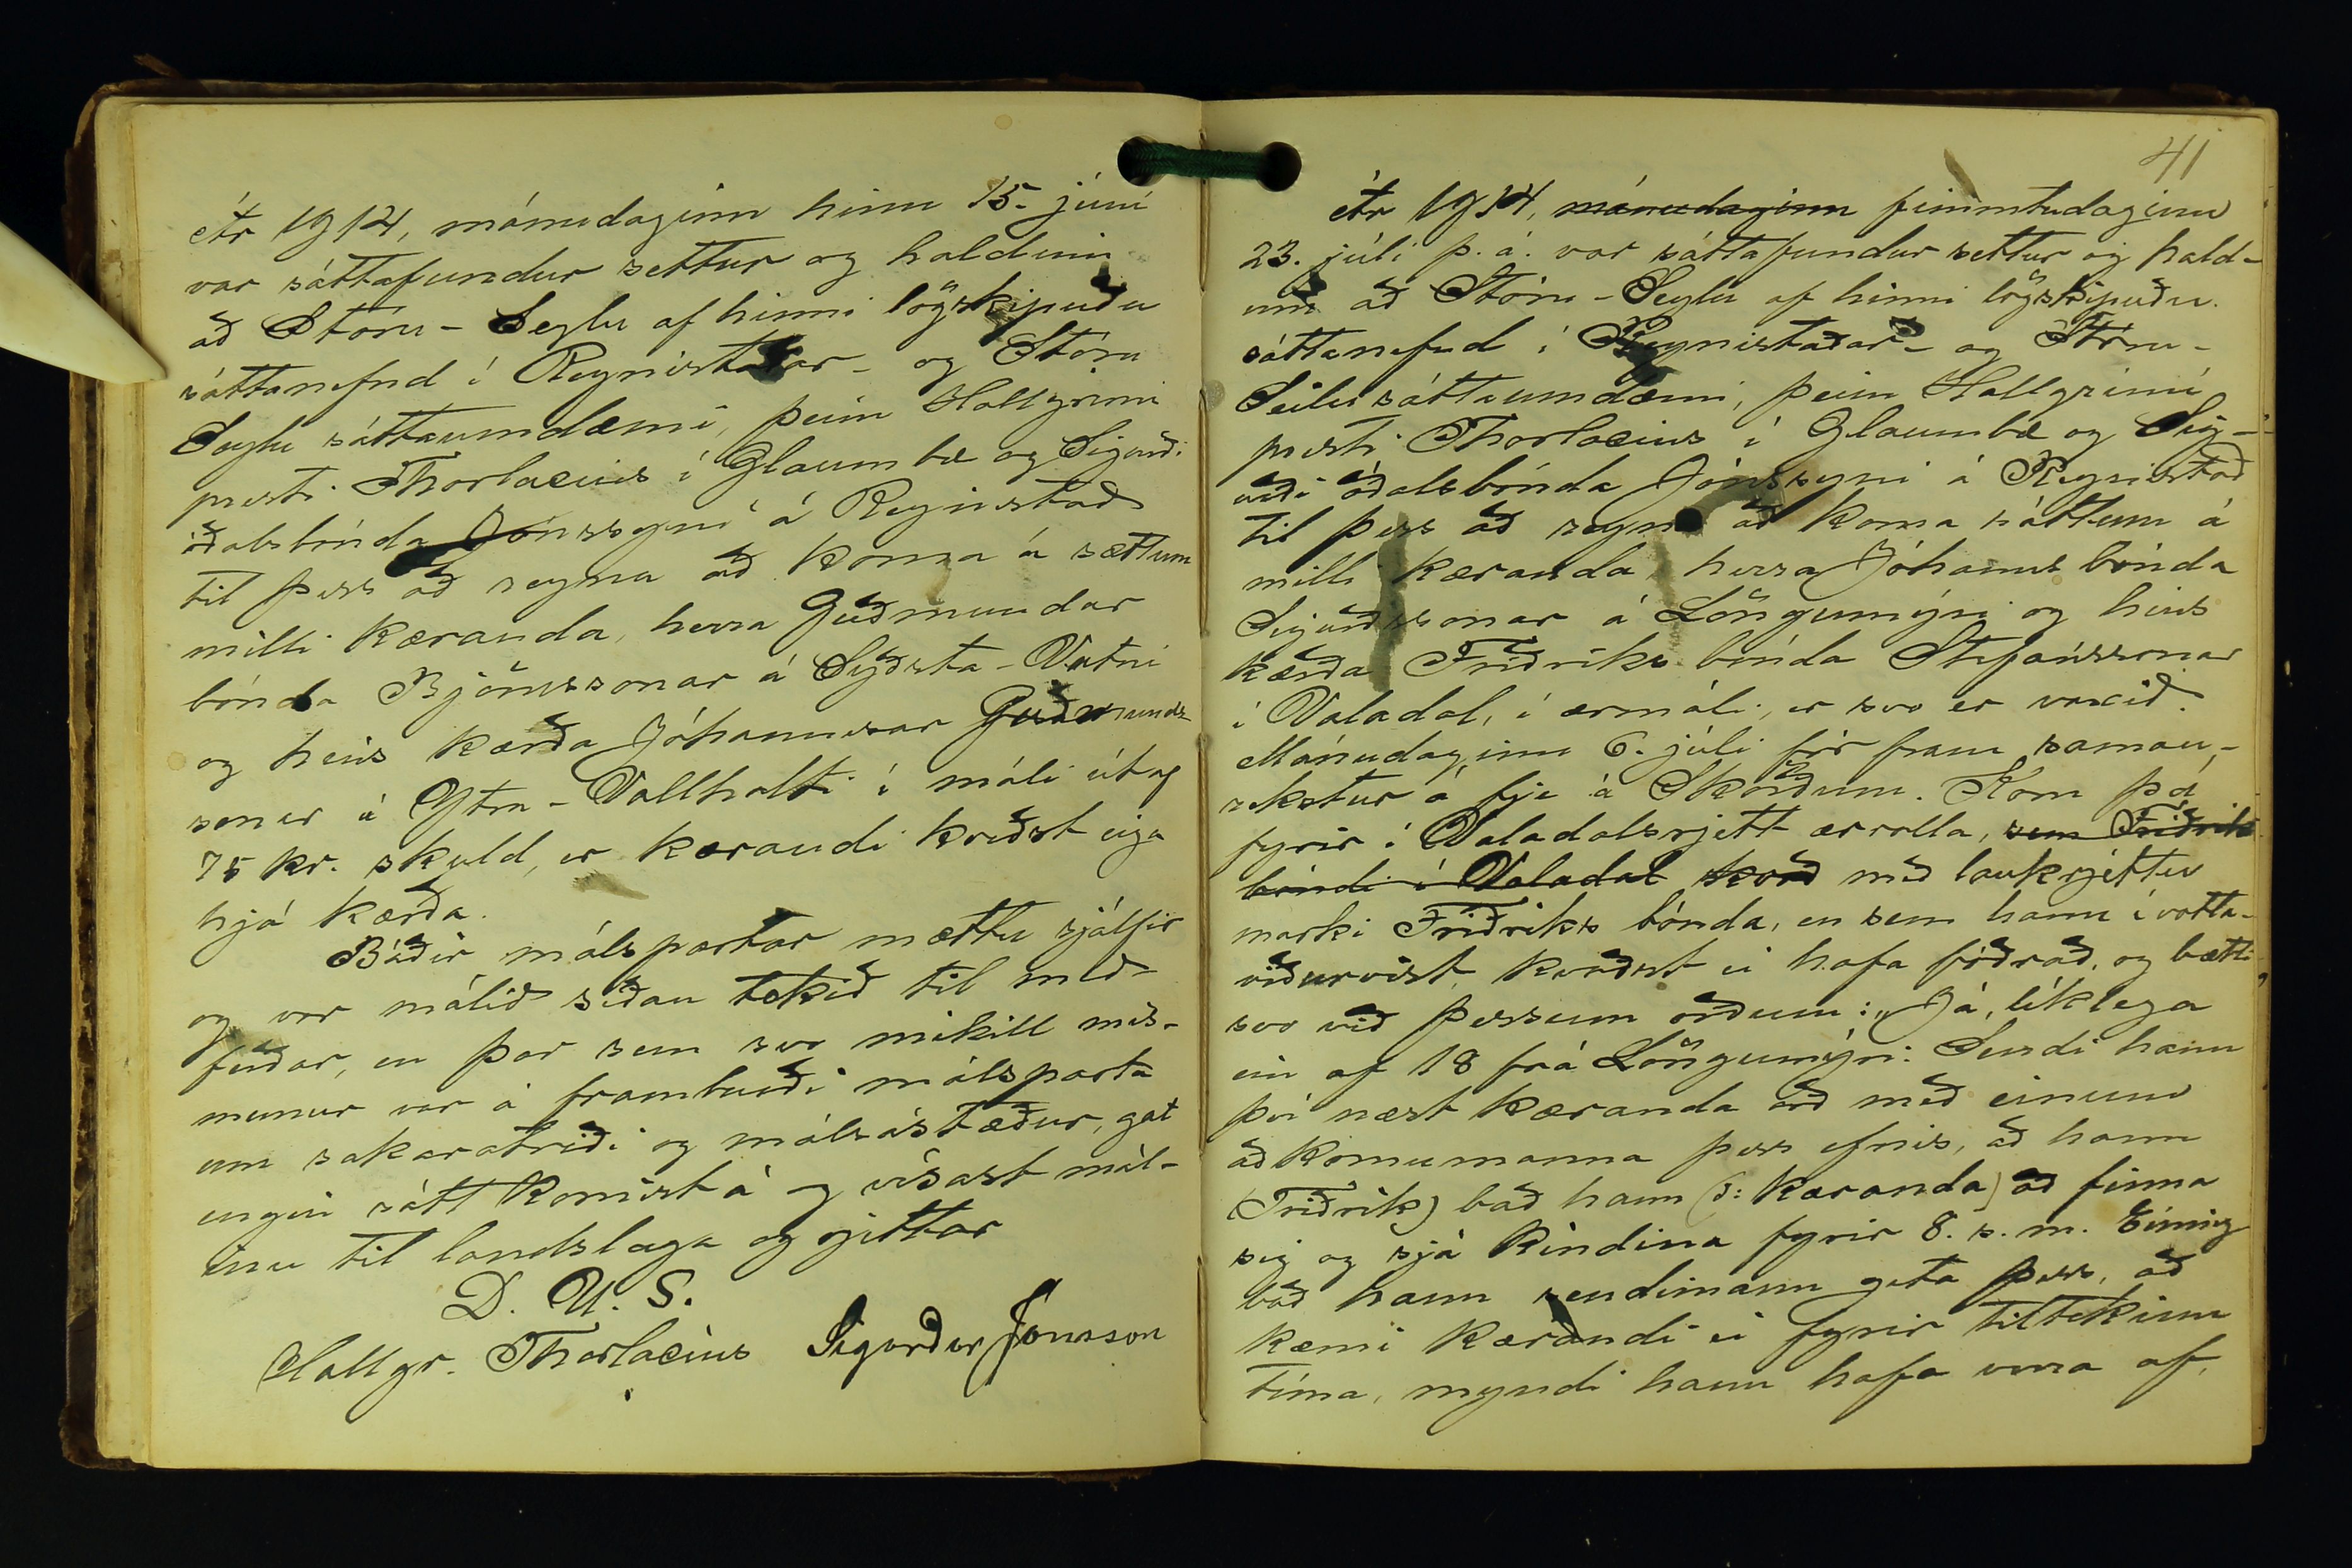 Ár 1914, mánudaginn hinn 15. júní
var sáttafundur settur og haldinn
að Stóru-Seylu af hinni lögskipuðu
sáttanefnd í Reynistaðar- og Stóru
Seylu sáttaumdæmi, þeim Hallgrími
presti Thorlacius í Glaumbæ og Sigurði
óðalsbónda Jónssyni á Reynistað
til þess að reyna að koma á sættum
milli kæranda, herra Guðmundar
bónda Björnssonar á Syðsta-Vatni
og hins kærða Jóhannesar Guðmunds-
sonar á Ytra-Vallholti í máli út af
75 kr. skuld, er kærandi kveðst eiga
hjá kærða.
Báðir málspartar mættu sjálfir
og var málið síðan tekið til með-
ferðar, en þar sem svo mikill mis-
munur var á framburði málsparta
um sakaratriði og málsástæður, gat
engin sátt komist á og vísast mál-
inu til landslaga og rjettar
D. U. S.
Hallgr. Thorlacius Sigurður Jónsson
41
Ár 1914, mánudaginn fimmtudaginn
23. júlí þ. á. var sáttafundur settur og hald-
inn að Stóru-Seylu af hinni lögskipuðu
sáttanefnd í Reynistaðar- og Stóru-
Seilu sáttaumdæmi, þeim Hallgrími
presti Thorlacius í Glaumbæ og Sig-
urði óðalsbónda Jónssyni á Reynistað
til þess að reyna að koma sáttum á
milli kæranda herra Jóhanns bónda
Sigurðssonar á Löngumýri og hins
kærða Friðriks bónda Stefánssonar
í Valadal, í ærmáli, er svo er vaxið.
Mánudaginn 6. júlí fór fram saman-
rekstur á fje á Skörðum. Kom þá
fyrir í Valadalsrjett ærrolla, sem Friðrik
bóndi í Valadal kvað með laukrjettu
marki Friðriks bónda, en sem hann í votta-
viðurvist, kvaðst ei hafa fóðrað, og bætti
svo við þessum orðum: „Já, líklega
ein af 18 frá Löngumýri: Sendi hann
því næst kæranda orð með einum
aðkomumanna þess efnis, að hann
(Friðrik) bað hann (ɔ: kæranda) að finna
sig og sjá kindina fyrir 8. s. m. Einnig
bað hann sendimann geta þess, að
kæmi kærandi ei fyrir tiltekinn
tíma, myndi hann hafa verra af,